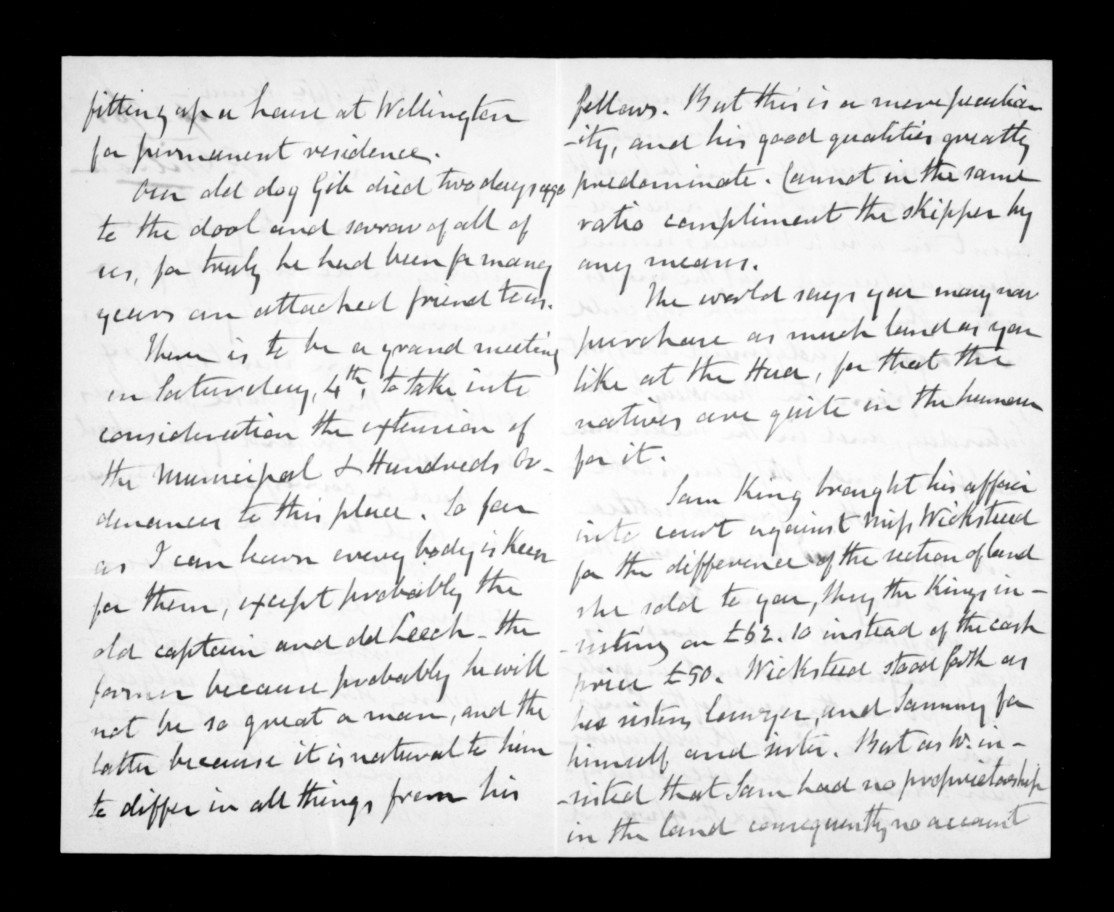 fitting up a house at Wellington
for permanent residence.
Our old dog Gib died two days ago
to the dool and sorrow of all of
us, for truly he had been for many
years an attached friend to us.
There is to be a grand meeting
on Saturday, 4th, to take into
consideration the extension of
the Municipal & Hundreds Or-
dinances to this place. So far
as I can learn every body is keen
for them, except probably the
old captain and old Leech - the
former because probably he will
not be so great a man, and the
latter because it is natural to him
to differ in all things from his
fellows. But this is a mere peculiar
-ity, and his good qualities greatly
predominate. Cannot in the same
ratio compliment the skipper by
any means.
The world says you may now
purchase as much land as you
like at the Hua, for that the
natives are quite in the humour
for it.
Sam King brought his affair
into court against Miss Wicksteed
for the difference of the section of land
she sold to you, they the Kings in-
-sisting on £62.10 instead of the cash
price £50. Wicksteed stood forth as
his sisters lawyer, and Sammy for
himself and sister. But as W. in-
-sisted that Sam had no proprietorship
in the land consequently no account